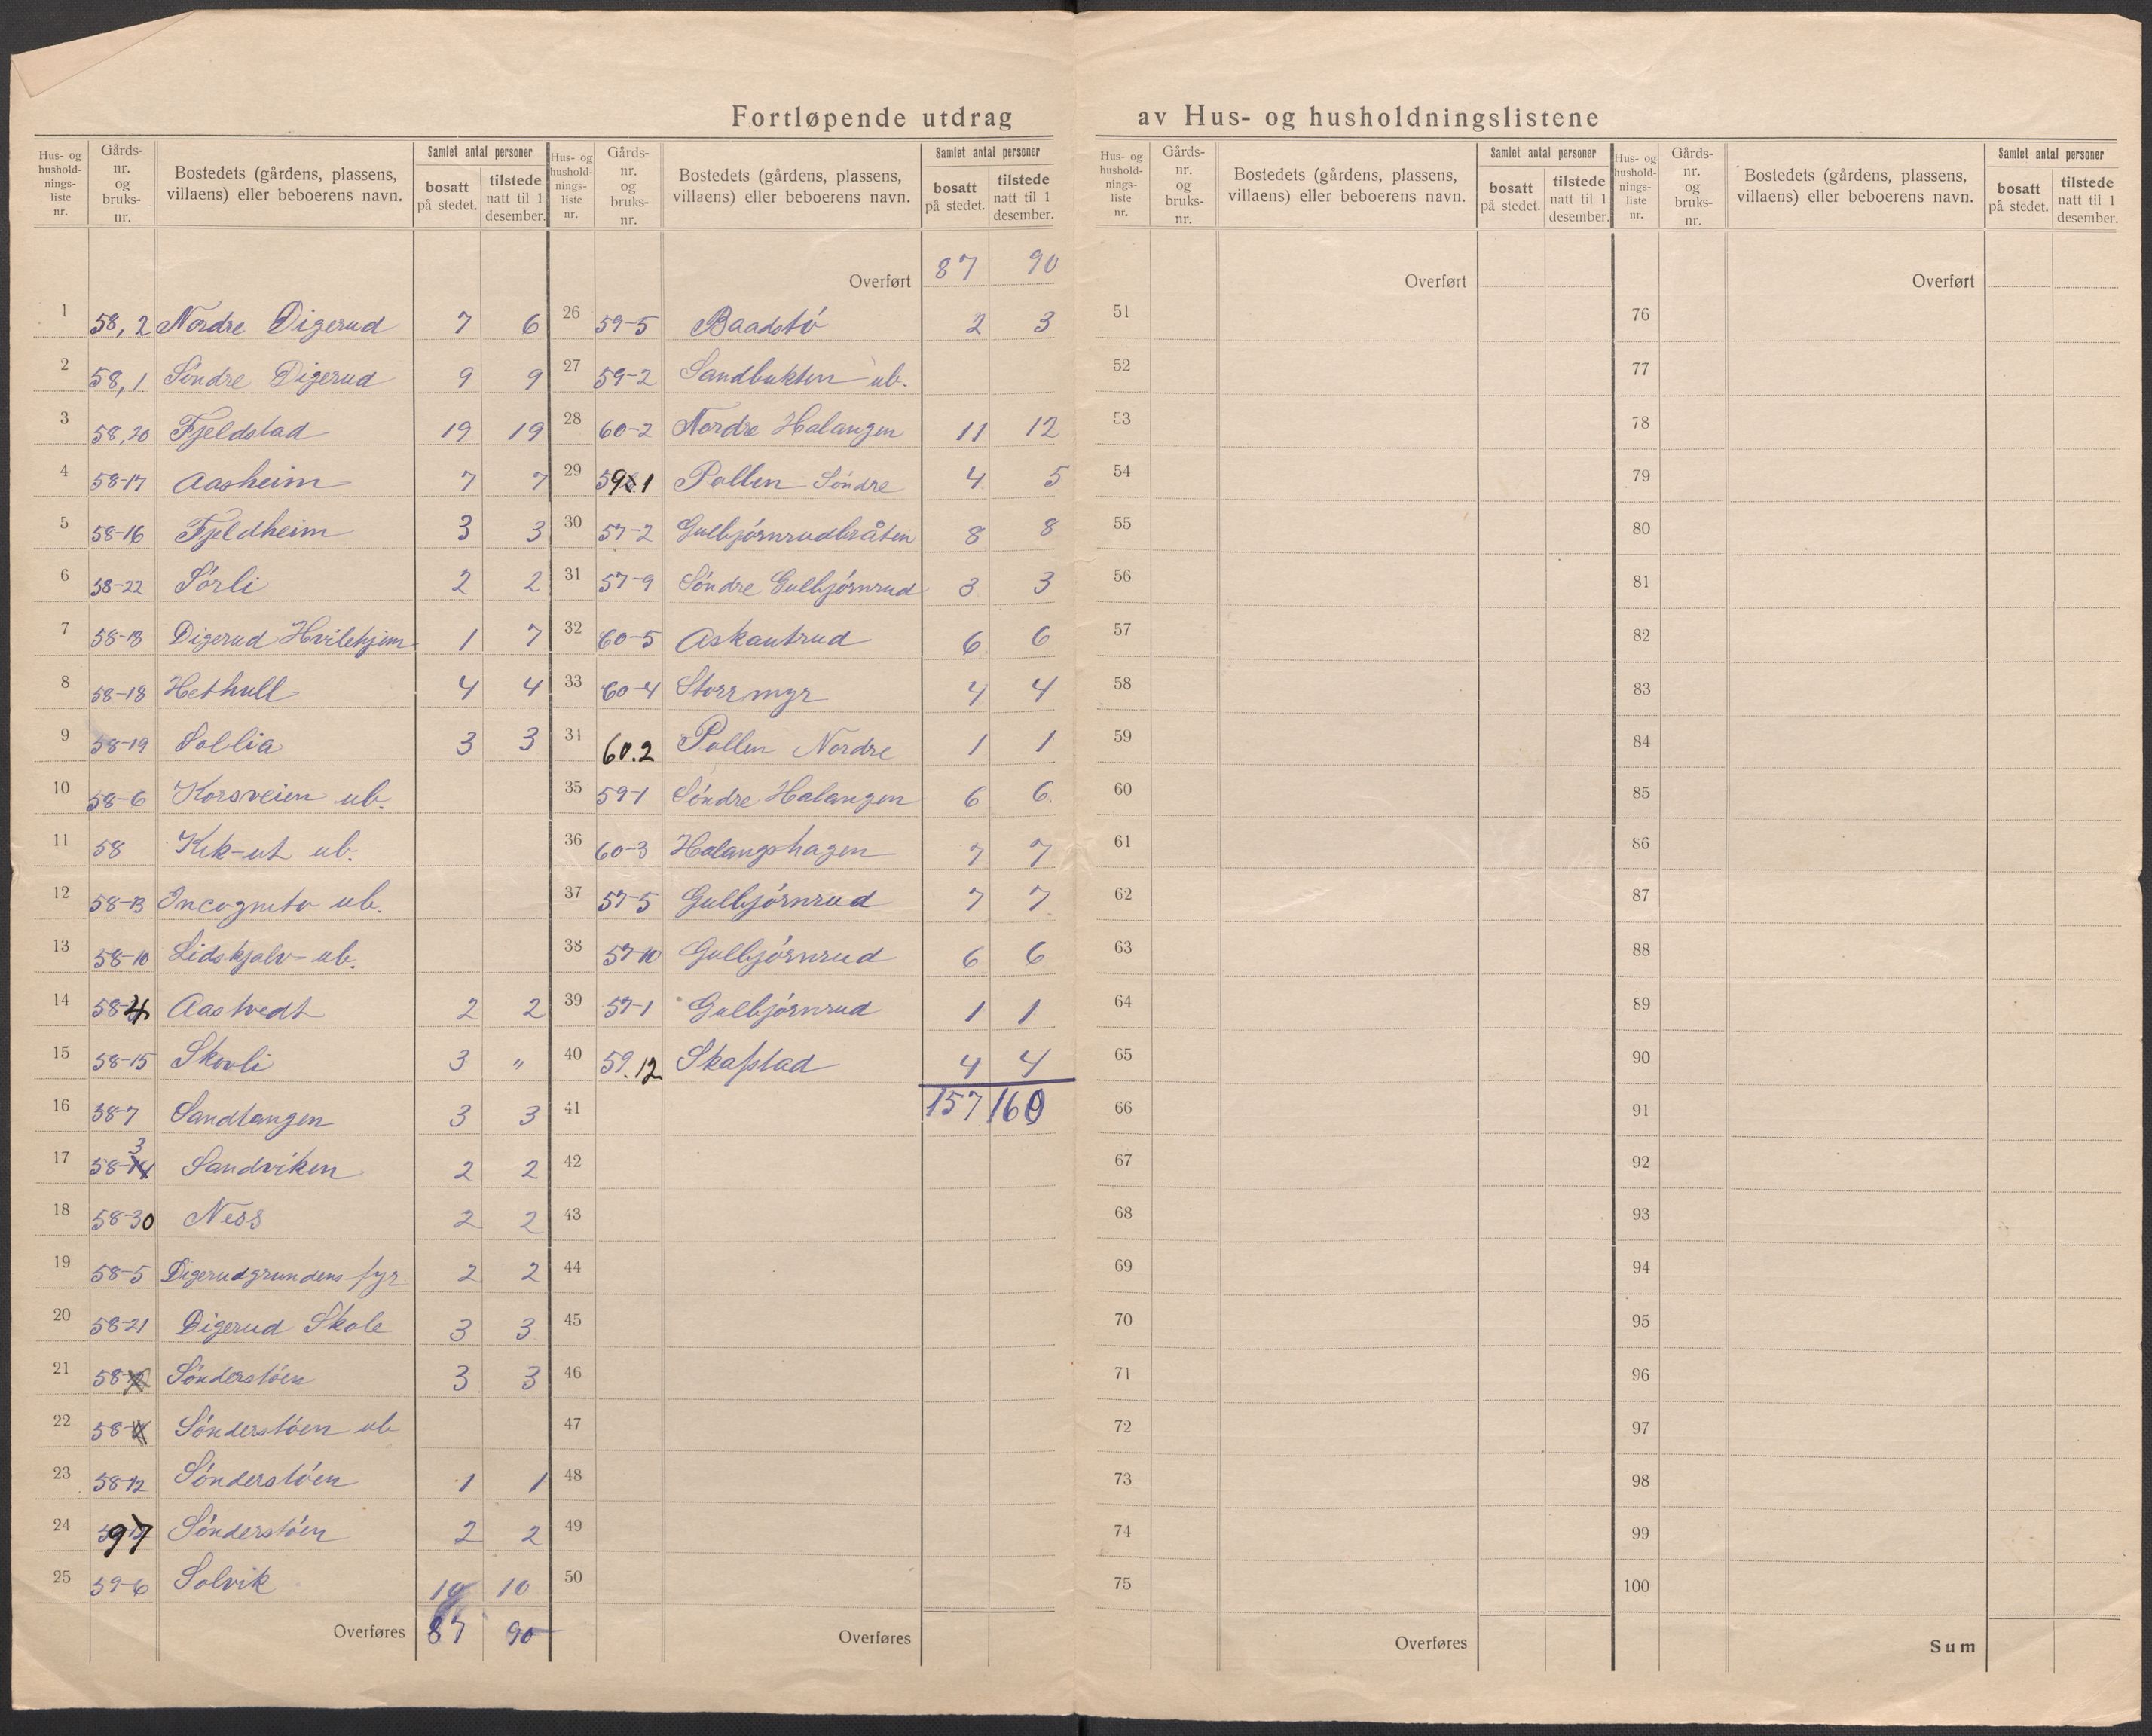 Fortløpende utdrag av Hus- og husholdningslistene
Hus- og hushold- nings- liste nr. Gårds- nr. og bruks- nr. Bostedets (gårdens, plassens, villaens) eller beboerens navn. Samlet antal personer bosatt på stedet. tilstede natt til 1 desember.
1 58,2 Nordre Digerud 7 6
2 58,1 Söndre Digerud 9 9
3 58,20 Fjeldstad 19 19
4 58-17 Aasheim 7 7
5 58-16 Fjeldheim 3 3
6 58-22 Sörli 2 2
7 58-18 Digerud Hvilehjem 1 7
8 58-18 Hethull 4 4
9 58-19 Sollia 3 3
10 58-6 Korsveien ub.
11 58 Kik-ut ub.
12 58-13 Incognito ub.
13 58-10 Lidskjalv- ub.
14 58-4 Aastvedt 2 2
15 58-15 Skovli 3 "
16 58-7 Sandtangen 3 3
17 58-3 Sandviken 2 2
18 58-30 Ness 2 2
19 58-5 Digerudgrundens fyr 2 2
20 58-21 Digerud Skole 3 3
21 58- Sönderstöen 3 3
22 58- Sönderstöen ub
23 58-12 Sönderstöen 1 1
24 Sönderstöen 2 2
25 59-6 Solvik 10 10
Overføres 87 90
Hus- og hushold- nings- liste nr. Gårds- nr. og bruks- nr. Bostedets (gårdens, plassens, villaens) eller beboerens navn. Samlet antal personer bosatt på stedet. tilstede natt til 1 desember.
Overført 87 90
26 59-5 Baadstö 2 3
27 59-2 Sandbukten ub.
28 60-2 Nordre Halangen 11 12
29 59 1 Pollen Söndre 4 5
30 57-2 Gulbjörnrudbråten 8 8
31 57-9 Söndre Gulbjörnrud 3 3
32 60-5 Askautrud 6 6
33 60-4 Storrmyr 4 4
31 60.2 Pollen Nordre 1 1
35 59-1 Söndre Halangen 6 6.
36 60-3 Halangshagen 7 7
37 57-5 Gulbjörnrud 7 7
38 57-10 Gulbjörnrud 6 6
39 57-1 Gulbjörnrud 1 1
40 59.12 Skafstad 4 4
41 157 160
42
43
44
45
46
47
48
49
50
Overføres
Hus- og hushold- nings- liste nr. Gårds- nr. og bruks- nr. Bostedets (gårdens, plassens, villaens) eller beboerens navn. Samlet antal personer bosatt på stedet. tilstede natt til 1 desember.
Overført
51
52
53
54
55
56
57
58
59
60
61
62
63
64
65
66
67
68
69
70
71
72
73
74
75
Overføres
Hus- og hushold- nings- liste nr. Gårds- nr. og bruks- nr. Bostedets (gårdens, plassens, villaens) eller beboerens navn. Samlet antal personer bosatt på stedet. tilstede natt til 1 desember.
Overført
76
77
78
79
80
81
82
83
84
85
86
87
88
89
90
91
92
93
94
95
96
97
98
99
100
Sum